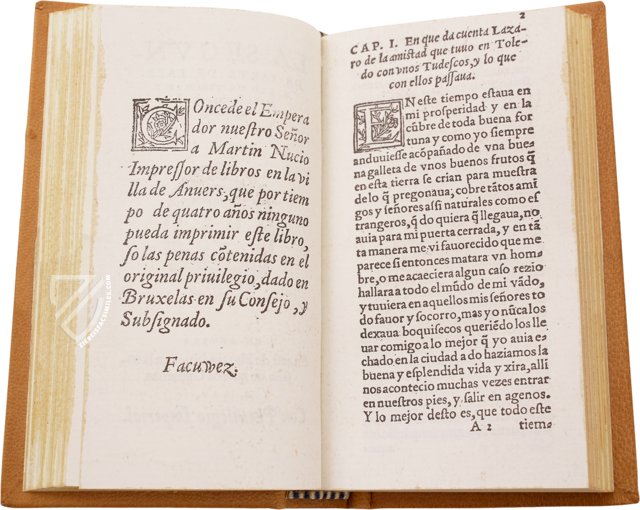 COncede el Empera
dor nuestro Señor
a Martin Nucio
Impressor de libros en la vi
lla de Anuers, que por tiem
po de quatro años ninguno
pueda imprimir este libro,
so las penas cõtenidas en el
original priuilegio, dado en
Bruxelas en su Consejo, y
Subsignado.
Facuwez.
2
CAP. I. En que da cuenta Laza
ro de la amistad que tuuo en Tole
do con vnos Tudescos, y lo que
con ellos passaua.
EN este tiempo estaua en
mi prosperidad y en la
cũbre de toda buena for
tuna y como yo siempre
anduuiesse acõpañado de vna bue
na galleta de vnos buenos frutos q̃
en esta tierra se crian para muestra
delo q̃ pregonaua, cobre tãtos ami
gos y señores assi naturales como es
trangeros, q̃ do quiera q̃ llegaua, no
auia para mi puerta cerrada, y en tã
ta manera me vi fauorecido que me
parece si entonces matara vn hom
bre, o me acaeciera algun caso rezio
hallara a todo el mũdo de mi vãdo,
y tuuiera en aquellos mis señores to
do fauor y socorro, mas yo nũca los
dexaua boquisecos queriẽdo los lle
uar comigo a lo mejor q̃ yo auia e
chado en la ciudad a do haziamos la
buena y esplendida vida y xira, alli
nos acontecio muchas vezes entrar
en nuestros pies, y salir en agenos.
Y lo mejor desto es, que todo este
A 2 tiem